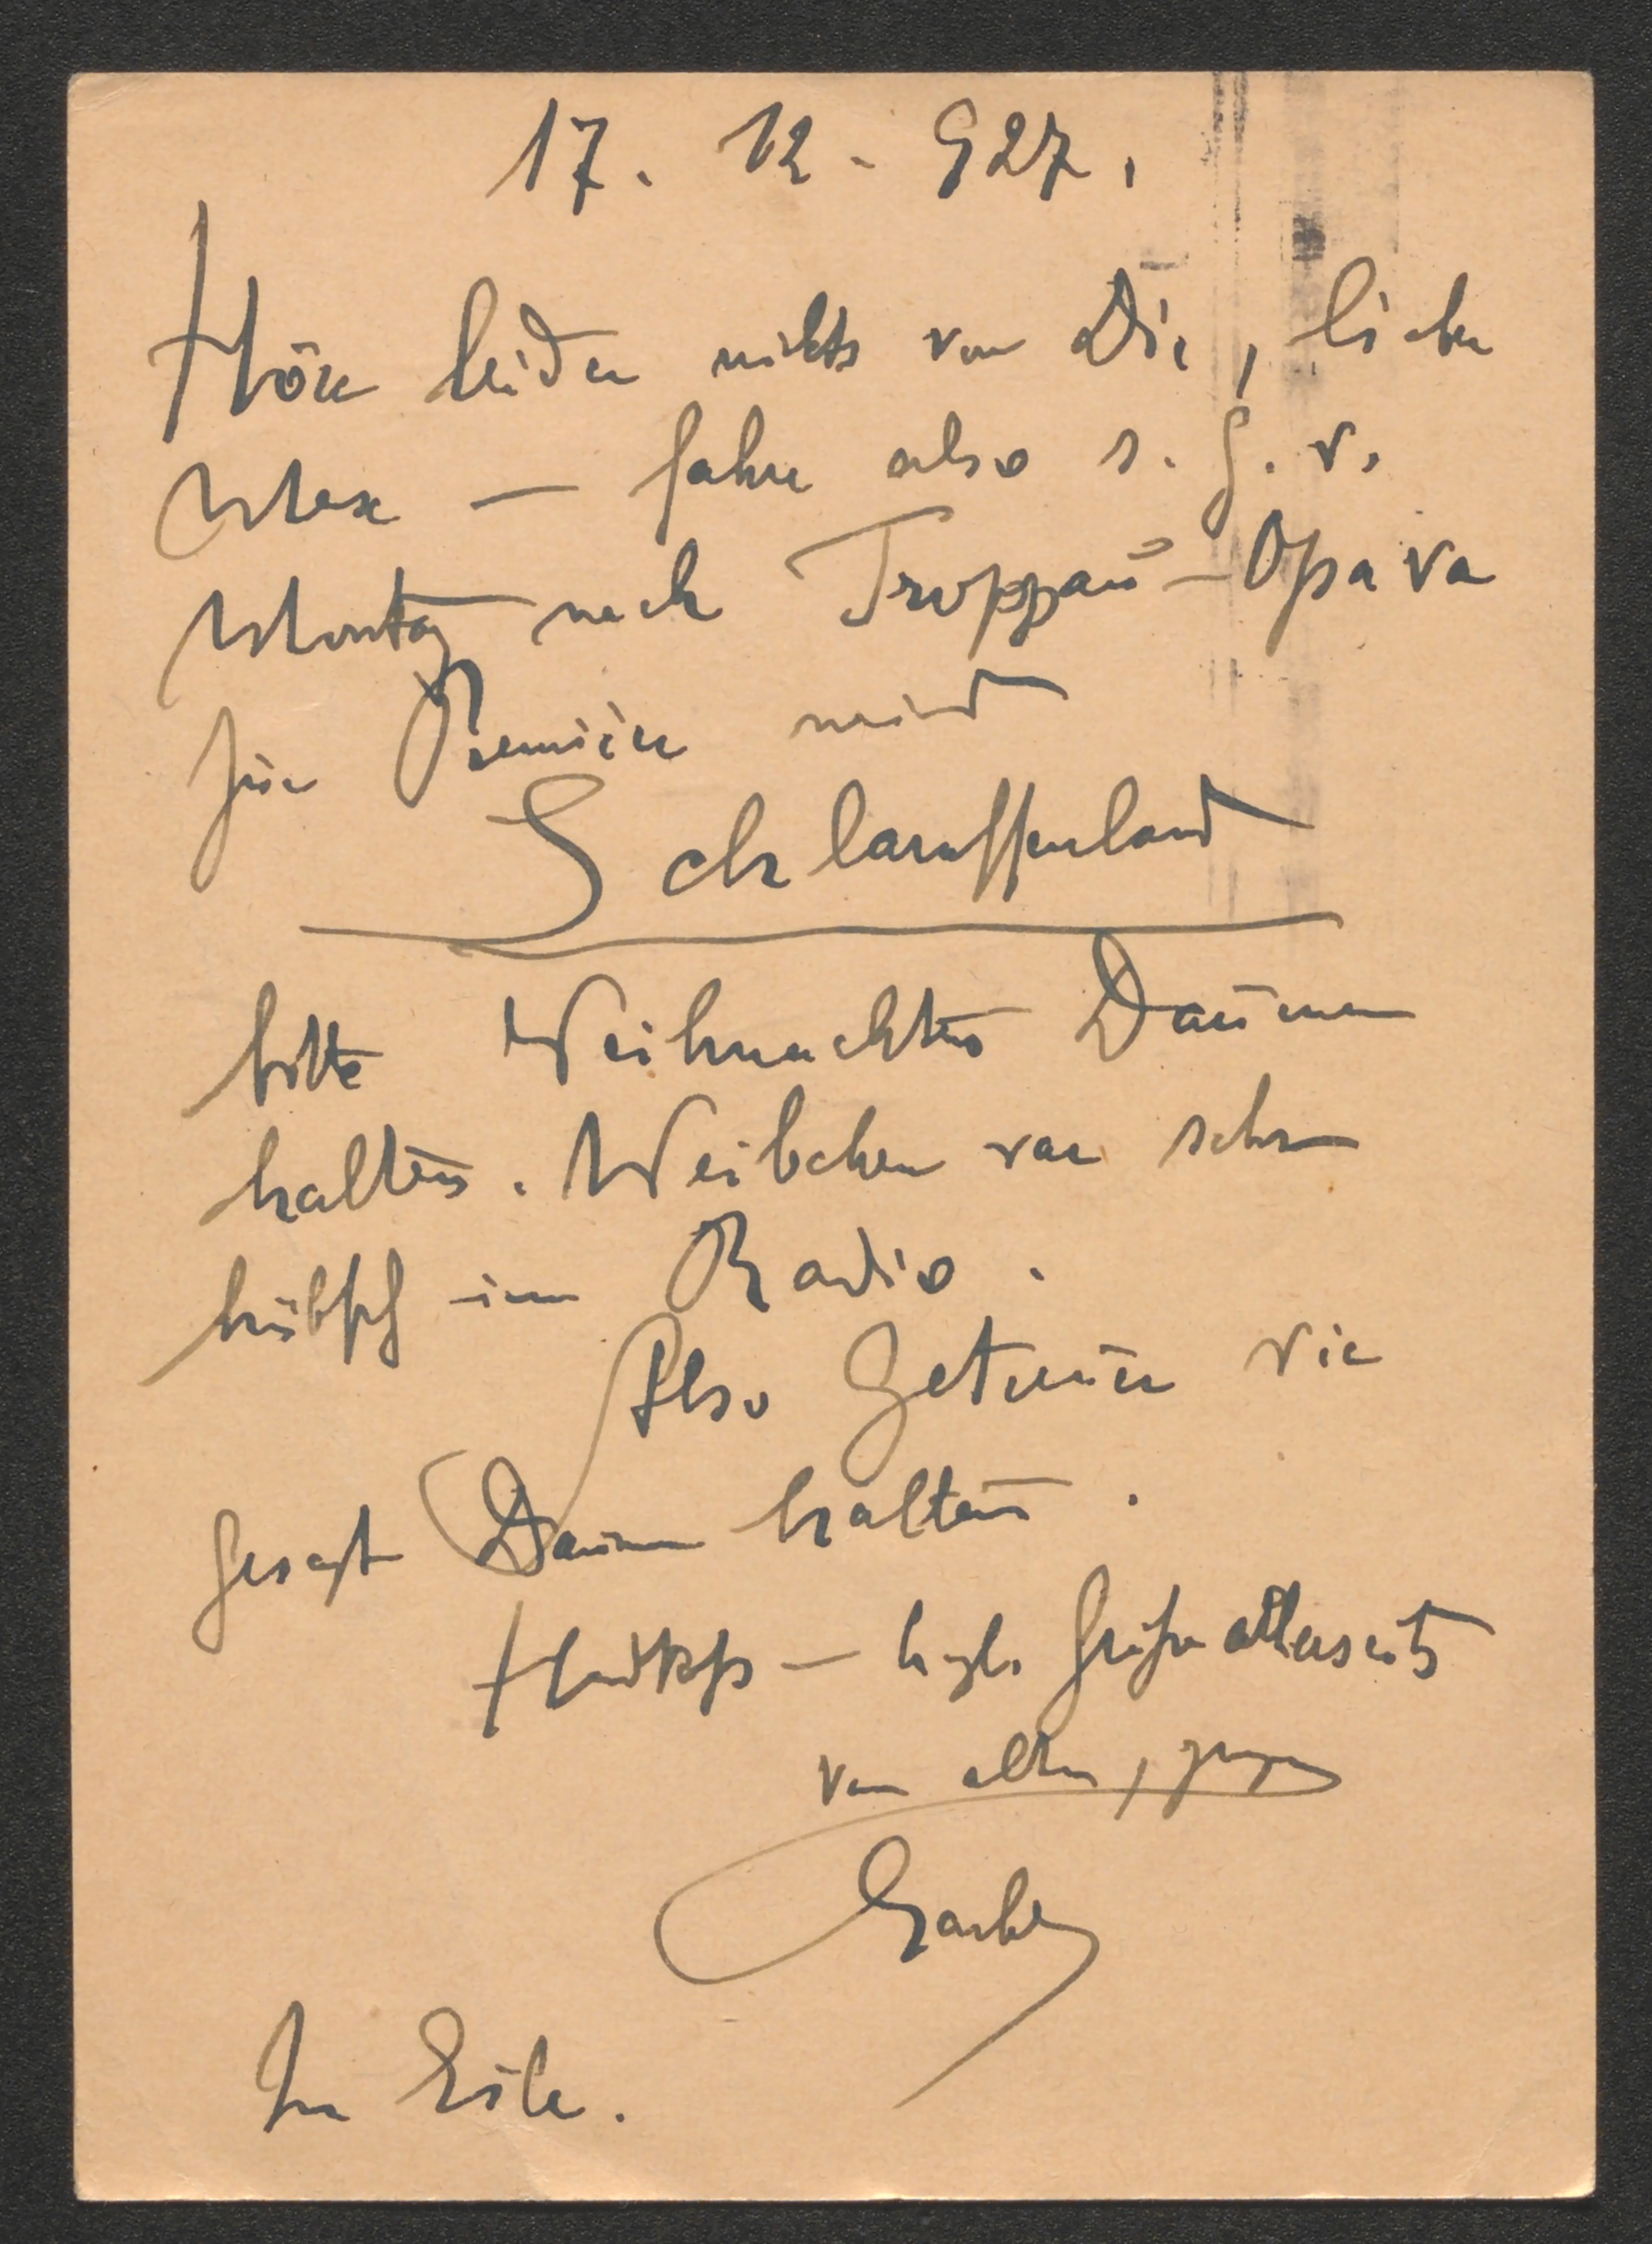 17. 12. 927.
Höre leider nichts von Dir, lieber
Max — fahre also s. g. w.
Montag nach Troppau-Opava
zur Première meines
Schlaraffenland
bitte Weihnachten Daumen
halten. Weibchen war sehr
hübsch im Radio.
Also Getreuer wie
gesagt Daumen halten.
Handkuss — herzl. Grüße allerseits
von alten, jungen
In Eile.